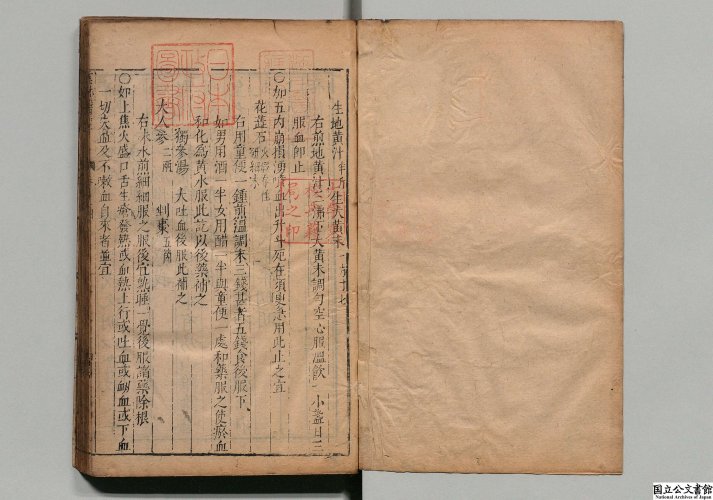 生地黃汁 生大黃末
右煎地黃汁二沸 大黃末調勻空心服溫飲 小盞日三
服血卽止
○如五內崩損湧噴血出升斗死在須臾用此止之宜
花蕋石
右用童便一鍾煎溫調末三錢甚者五錢食後服下
如男用酒一半女用醋一半與童便一處和藥服之使瘀血
和化爲黃水服此訖以後藥補之
獨參湯 大吐血後服此補之
大人參二兩 棗五箇
右水煎細細服之服後宜熟睡一覺後服諸藥除根
○如上焦火盛口舌生瘡發熱或血熱上行或吐血或衂血或下血
一切失血及不嗽血自來者並宜
日本政府圖書
国立公文書館
National Archives of Japan